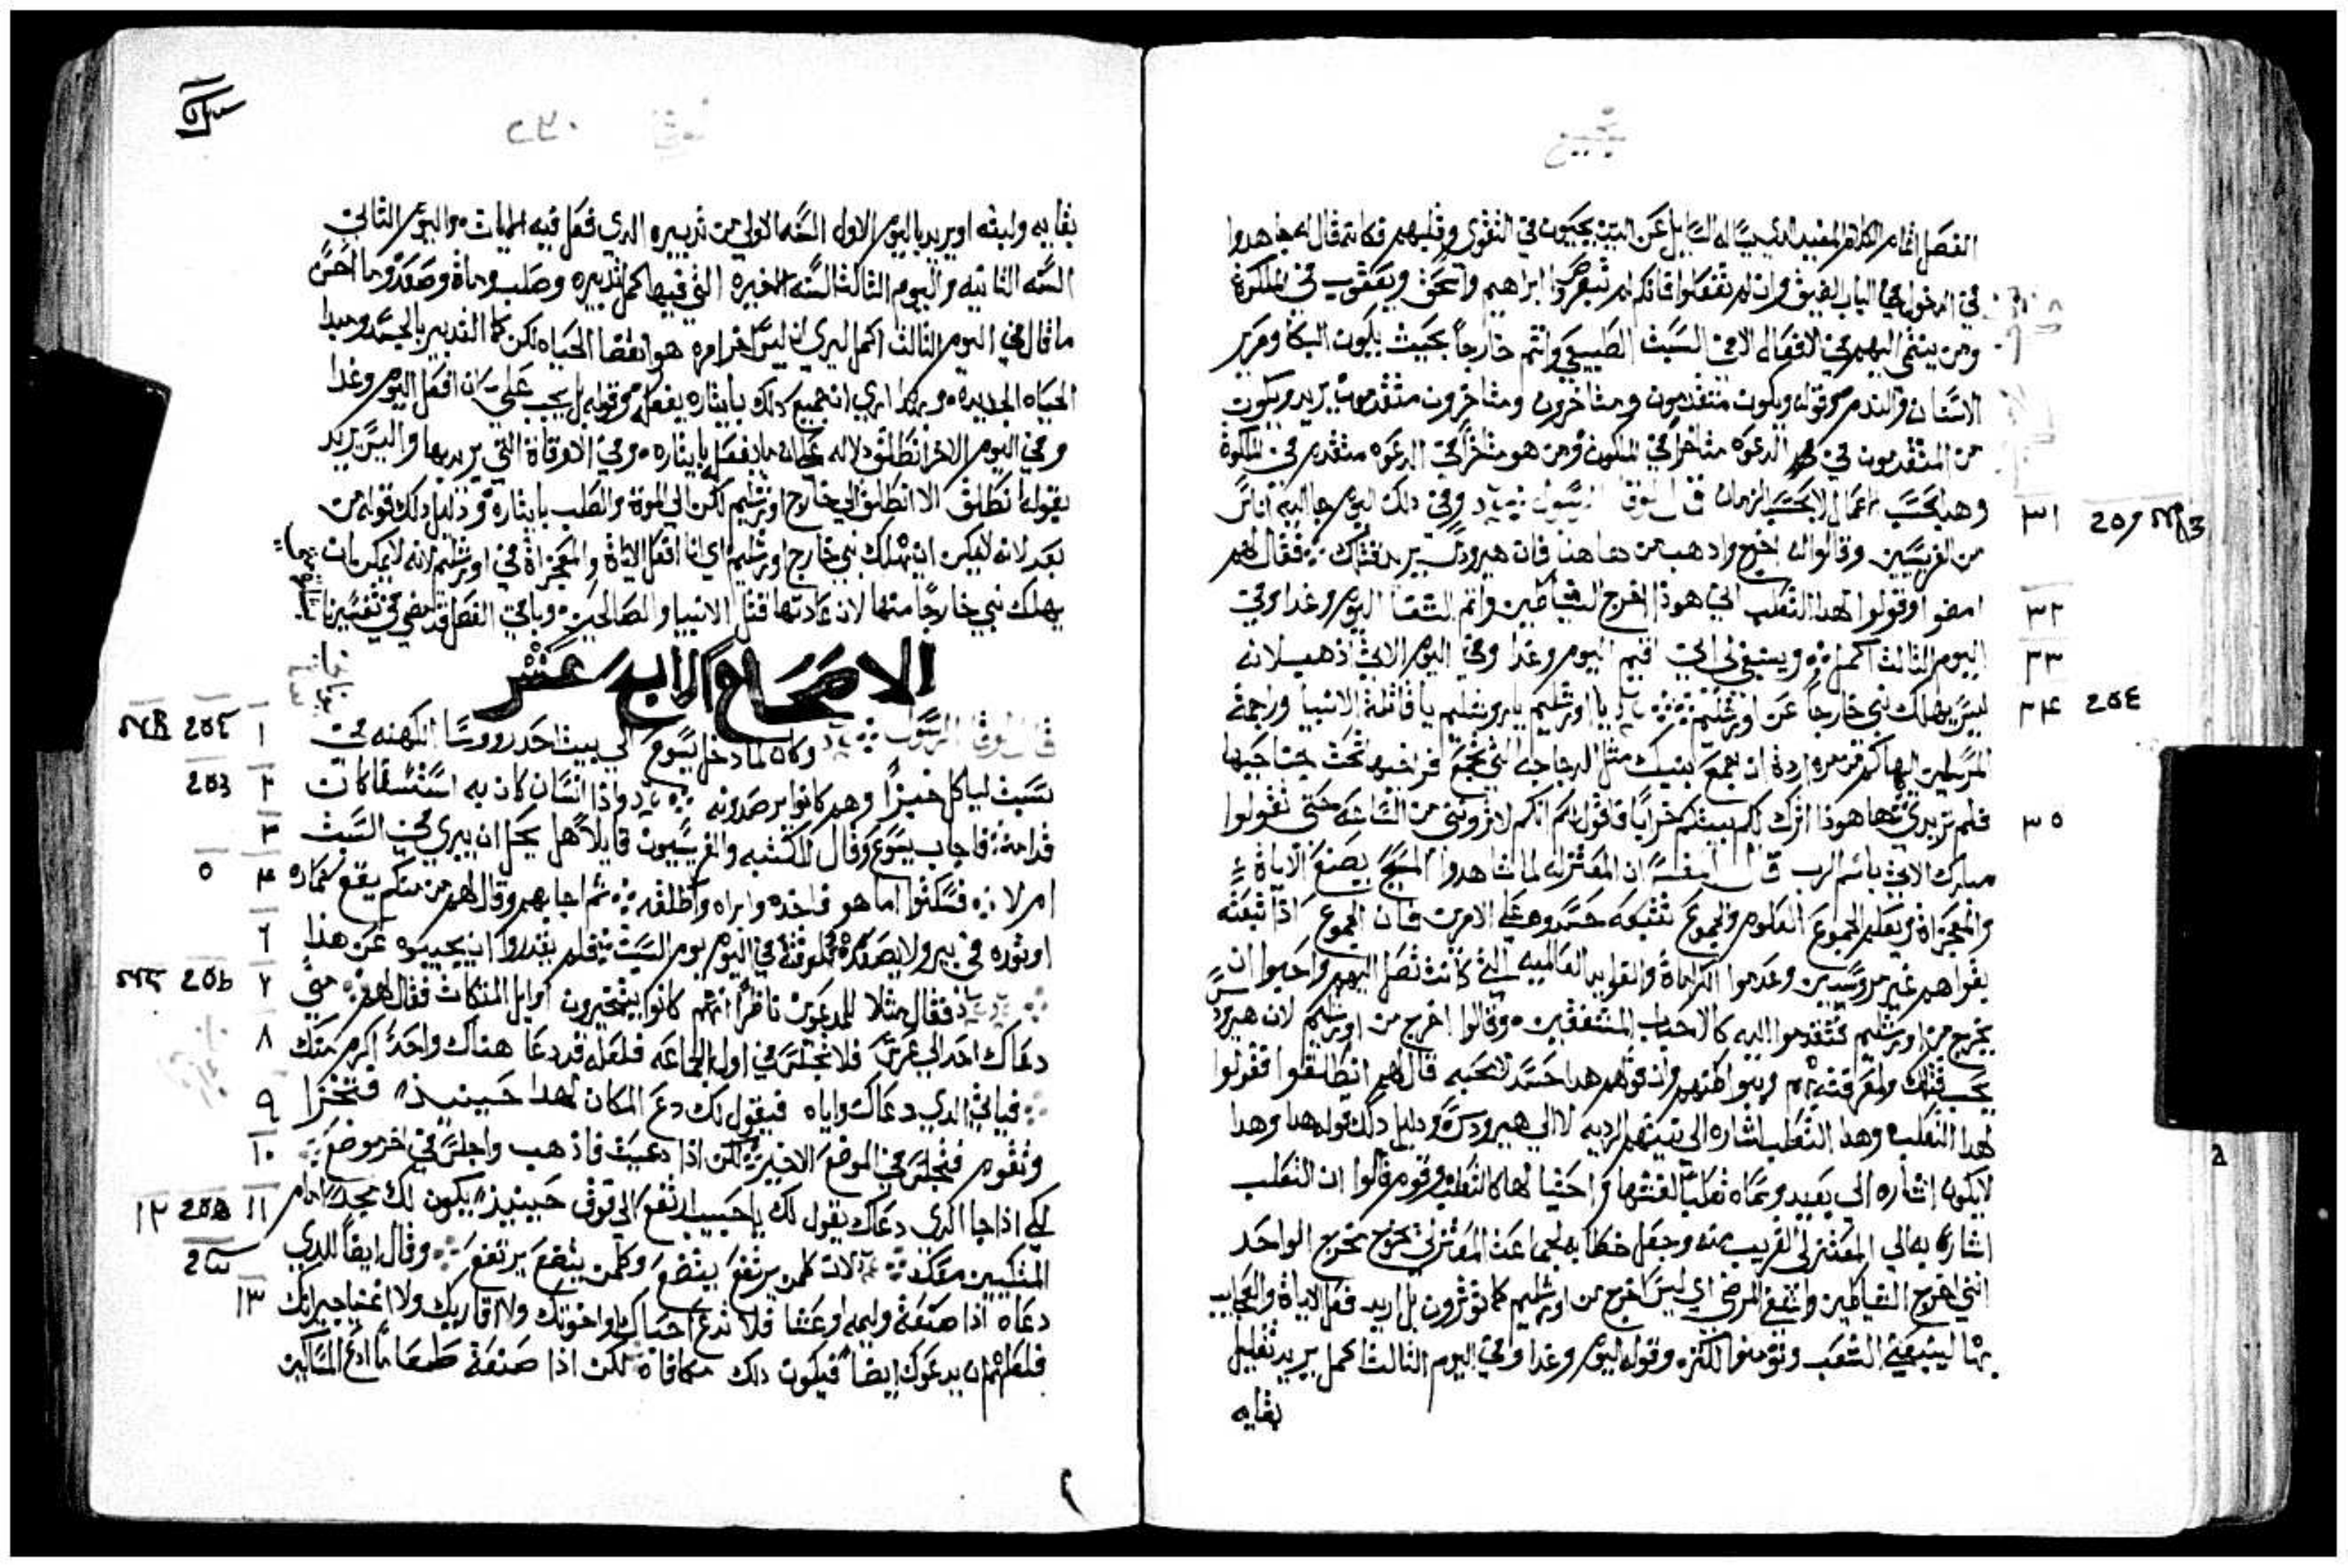 الفصل اتمام الكلام المفيد الذي
في الدخول من هذا الباب الضيق وان لم تفعلوا فانكم لم تبصروا ابراهيم واسحق ويعقوب في الملكوة
ومن ينتمي اليهم في الافعال لا في السبت الطبيعي وانتم خارجاً بحيث يكون البكا وصرير
الاسنان والندم وقوله ويكون متقدمون ومتاخرون ومتاخرون متقدمون يريد ويكون
من المتقدمون في الدعوه متاخراً في الملكوت ومن هو متاخراً في الدعوه متقدم في الملكوة
وهذا بحسب الاعمال لا بحسب الزمان قال لوقا الرسول وفي ذلك اليوم جا اليه اناس
٣١
من الفريسيين وقالوا له اخرج واذهب من هاهنا فان هيرودس يريد قتلك فقال لهم
٣٢ امضوا وقولوا لهذا الثعلب اني هوذا اخرج الشياطين واتم الشفا اليوم وغدا وفي
٣٣ اليوم الثالث اكمل وينبغي لي ان اقيم اليوم وغدا وفي اليوم الاتي اذهب لانه
٣٤ ليس يهلك نبي خارجاً عن اورشليم يا اورشليم يا اورشليم يا قاتلة الانبيا وراجمة
المرسلين اليها كم من مره اردة ان اجمع بنيك مثل الدجاجه التي تجمع فراخها تحت جناحيها
٣٥ فلم تريدي ها هوذا اترك لكم بيتكم خراباً فاقول لكم انكم لا تروني من الساعه حتى تقولوا
مبارك الاتي باسم الرب قال المفسر ان المعتزله لما شاهدوا المسيح يصنع الاياة
والمعجزاة ويعلم الجموع العلوم والجموع تتبعه حسدوه على الامرين فان الجموع اذا تبعته
بقوا هم غير مروسين وعدموا الكراماة والفوايد العالميه التي كانت تصل اليهم واحبوا ان
يخرج من اورشليم فتقدموا اليه كالاحباب المشفقين وقالوا اخرج من اورشليم لان هيرودس
يحب قتلك ولمعرفته قال لهم انطلقوا فقولوا
لهذا الثعلب وهذا الثعلب اشاره الى نيتهم الرديه لا الى هيرودس ودليل ذلك قوله هذا وهذا
لا يكون اشاره الى بعيد وسماه ثعلباً لغشها واحتيالها كالثعلب وقوم قالوا ان الثعلب
اشاره به الى المعتزلي القريب منه وجعل خطابه لجماعة المعتزلي يخرج مخرج الواحد
انني اخرج الشياطين واشفي المرضى اي ليس اخرج من اورشليم كما توثرون بل اريد فعل الاياة والعجايب
بها ليتبعني الشعب وتومنوا الكثره وقوله اليوم وغدا وفي اليوم الثالث اكمل يريد تقليل
بقايه
٢٣٠
بقايه ولبثه او يريد باليوم الاول السنه الاولى من تدبيره الذي فعل فيه الايات واليوم الثاني
السنه الثانيه واليوم الثالث السنه الاخيره التي فيها كمل تدبيره وصلب وماة وصعد وما احسن
ما قال في اليوم الثالث اكمل ليري ان ليس اخر امره هو انقضا الحياه لكن كمال التدبير بالجسد ومبدا
الحياه الجديده وهكذا ليري ان جميع ذلك بايثاره يفعله وقوله بل يجب علي ان افعل اليوم وغدا
وفي اليوم الاخر انطلق دلاله على انه يفعل بايثاره وفي الاوقاة التي يريدها وليس يريد
بقوله انطلق الا انطلق الى خارج اورشليم لكن الى الموة والصلب بايثاره ودليل ذلك قوله من
بعد لانه لا يمكن ان يهلك نبي خارج اورشليم اي انا افعل الاياة والمعجزاة في اورشليم لانه لا يمكن ان
يهلك نبي خارجاً منها لان عادتها قتل الانبيا والصالحين وباقي الفصل قد مضى في تفسير
الاصحاح الرابع عشر
قال لوقا الرسول وكان لما دخل يسوع الى بيت احد رووسا الكهنه في ١
سبت لياكل خبزاً وهم كانوا يرصدونه واذا انسان كان به استسقا كان ٢
قدامه فاجاب يسوع وقال للكتبه والفريسيين قايلاً هل يحل ان يبري في السبت ٣
ام لا فسكتوا اما هو فاخذه وابراه واطلقه ثم اجابهم وقال لهم من منكم يقع حماره ٤ ٥
او ثوره في بير ولا يصعده للوقت في اليوم يوم السبت فلم يقدروا ان يجيبوه عن هذا ٦
فقال مثلا للمدعوين ناظراً انهم كانوا يتخيرون اوايل المتكات فقال لهم متى ٧
دعاك احد الى عرس فلا تجلس في اول الجماعه فلعله قد دعا هناك واحداً اكرم منك ٨
فياتي الذي دعاك واياه فيقول لك دع المكان لهذا حينيذ فتخزا ٩
وتقوم فتجلس في الموضع الاخير لكن اذا دعيت فاذهب واجلس في اخر موضع ١٠
لكي اذا جا الذي دعاك يقول لك يا حبيب ارتفع الى فوق حينيذ يكون لك مجداً امام ١١
المتكيين معك لان كلمن يرتفع يتضع وكلمن يتضع يرتفع وقال ايضاً للذي ١٢
دعاه اذا صنعة وليمه او عشا فلا تدع احباك ولا اخوتك ولا اقاربك ولا اغنيا جيرانك ١٣
فلعلهم ان يدعوك ايضاً فيكون ذلك مكافاة لكن اذا صنعة طعاماً ادع المساكين